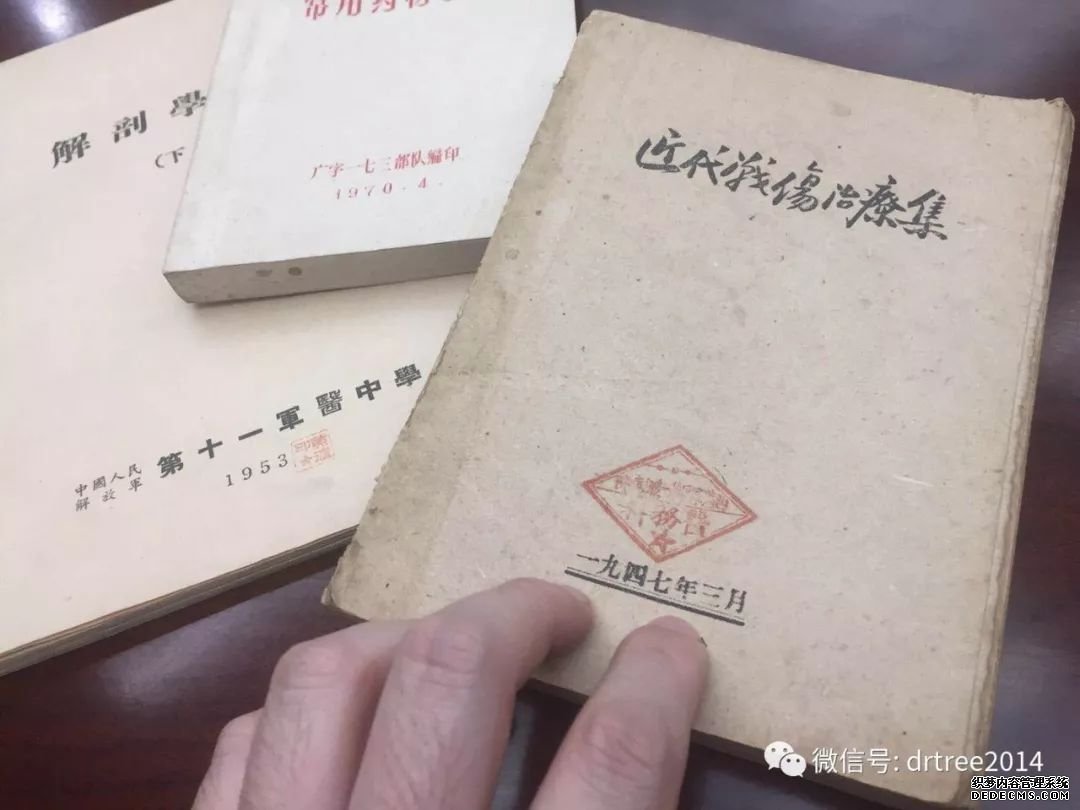 常用药物
广字一七三部队编印
1970.4.
解剖學
(下
中國人民
解放軍
第十一軍醫中學
1953
近代戰傷治療集
一九四七年三月
微信号: drtree2014
织梦内容管理系统
DEDECMS.COM